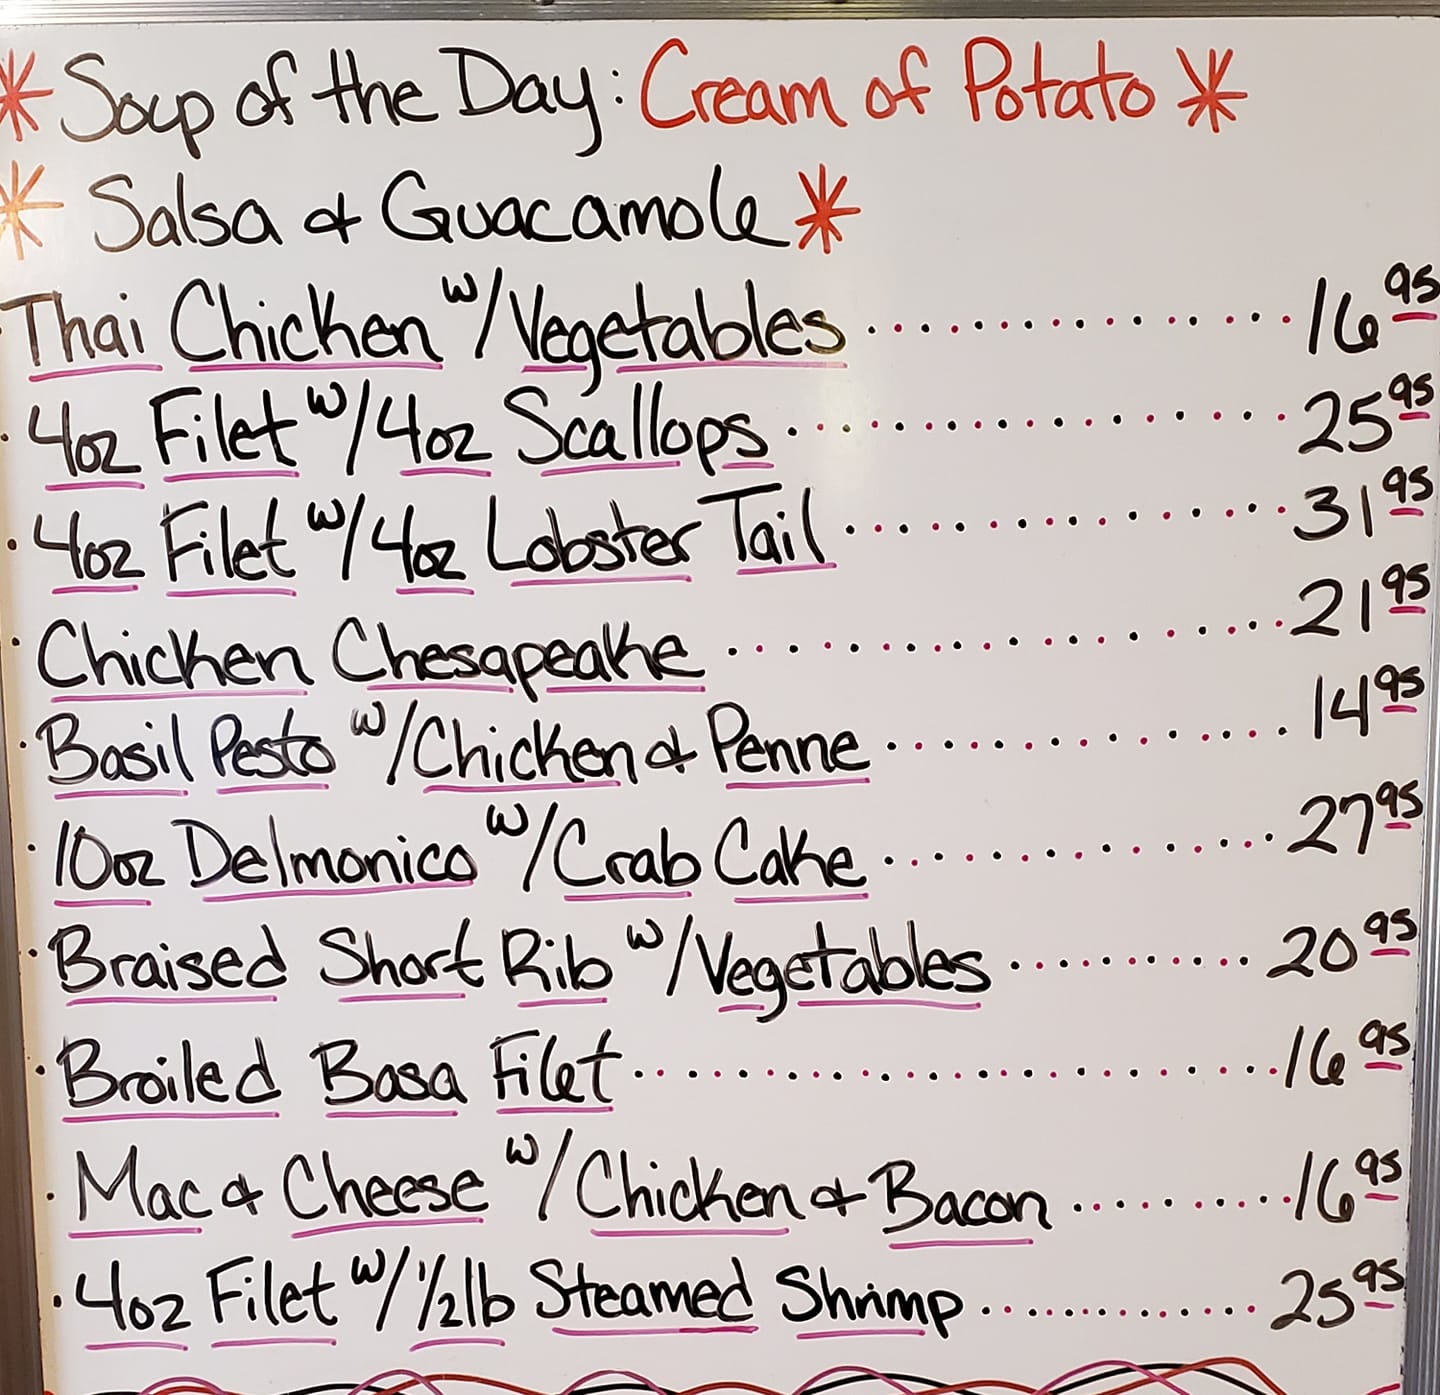 * Soup of the Day: Cream of Potato *
* Salsa & Guacamole *
· Thai Chicken w/Vegetables ................ 16 95
· 4oz Filet w/4oz Scallops .................. 25 95
· 4oz Filet w/4oz Lobster Tail ................ 31 95
· Chicken Chesapeake .................. 21 95
· Basil Pesto w/Chicken & Penne .............. 14 95
· 10oz Delmonico w/Crab Cake .............. 27 95
· Braised Short Rib w/Vegetables ........... 20 95
· Broiled Basa Filet ........................ 16 95
· Mac & Cheese w/Chicken & Bacon .......... 16 95
· 4oz Filet w/½lb Steamed Shrimp ............. 25 95